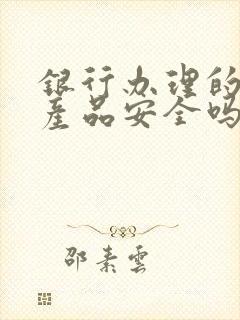 银行办理的
产品安全吗
邵素雲